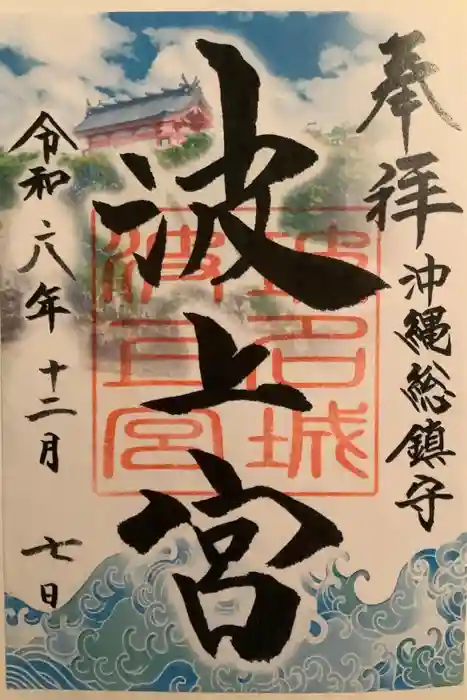 奉拝
沖縄総鎮守
波上宮
琉球城
波上宮
令和六年十二月七日